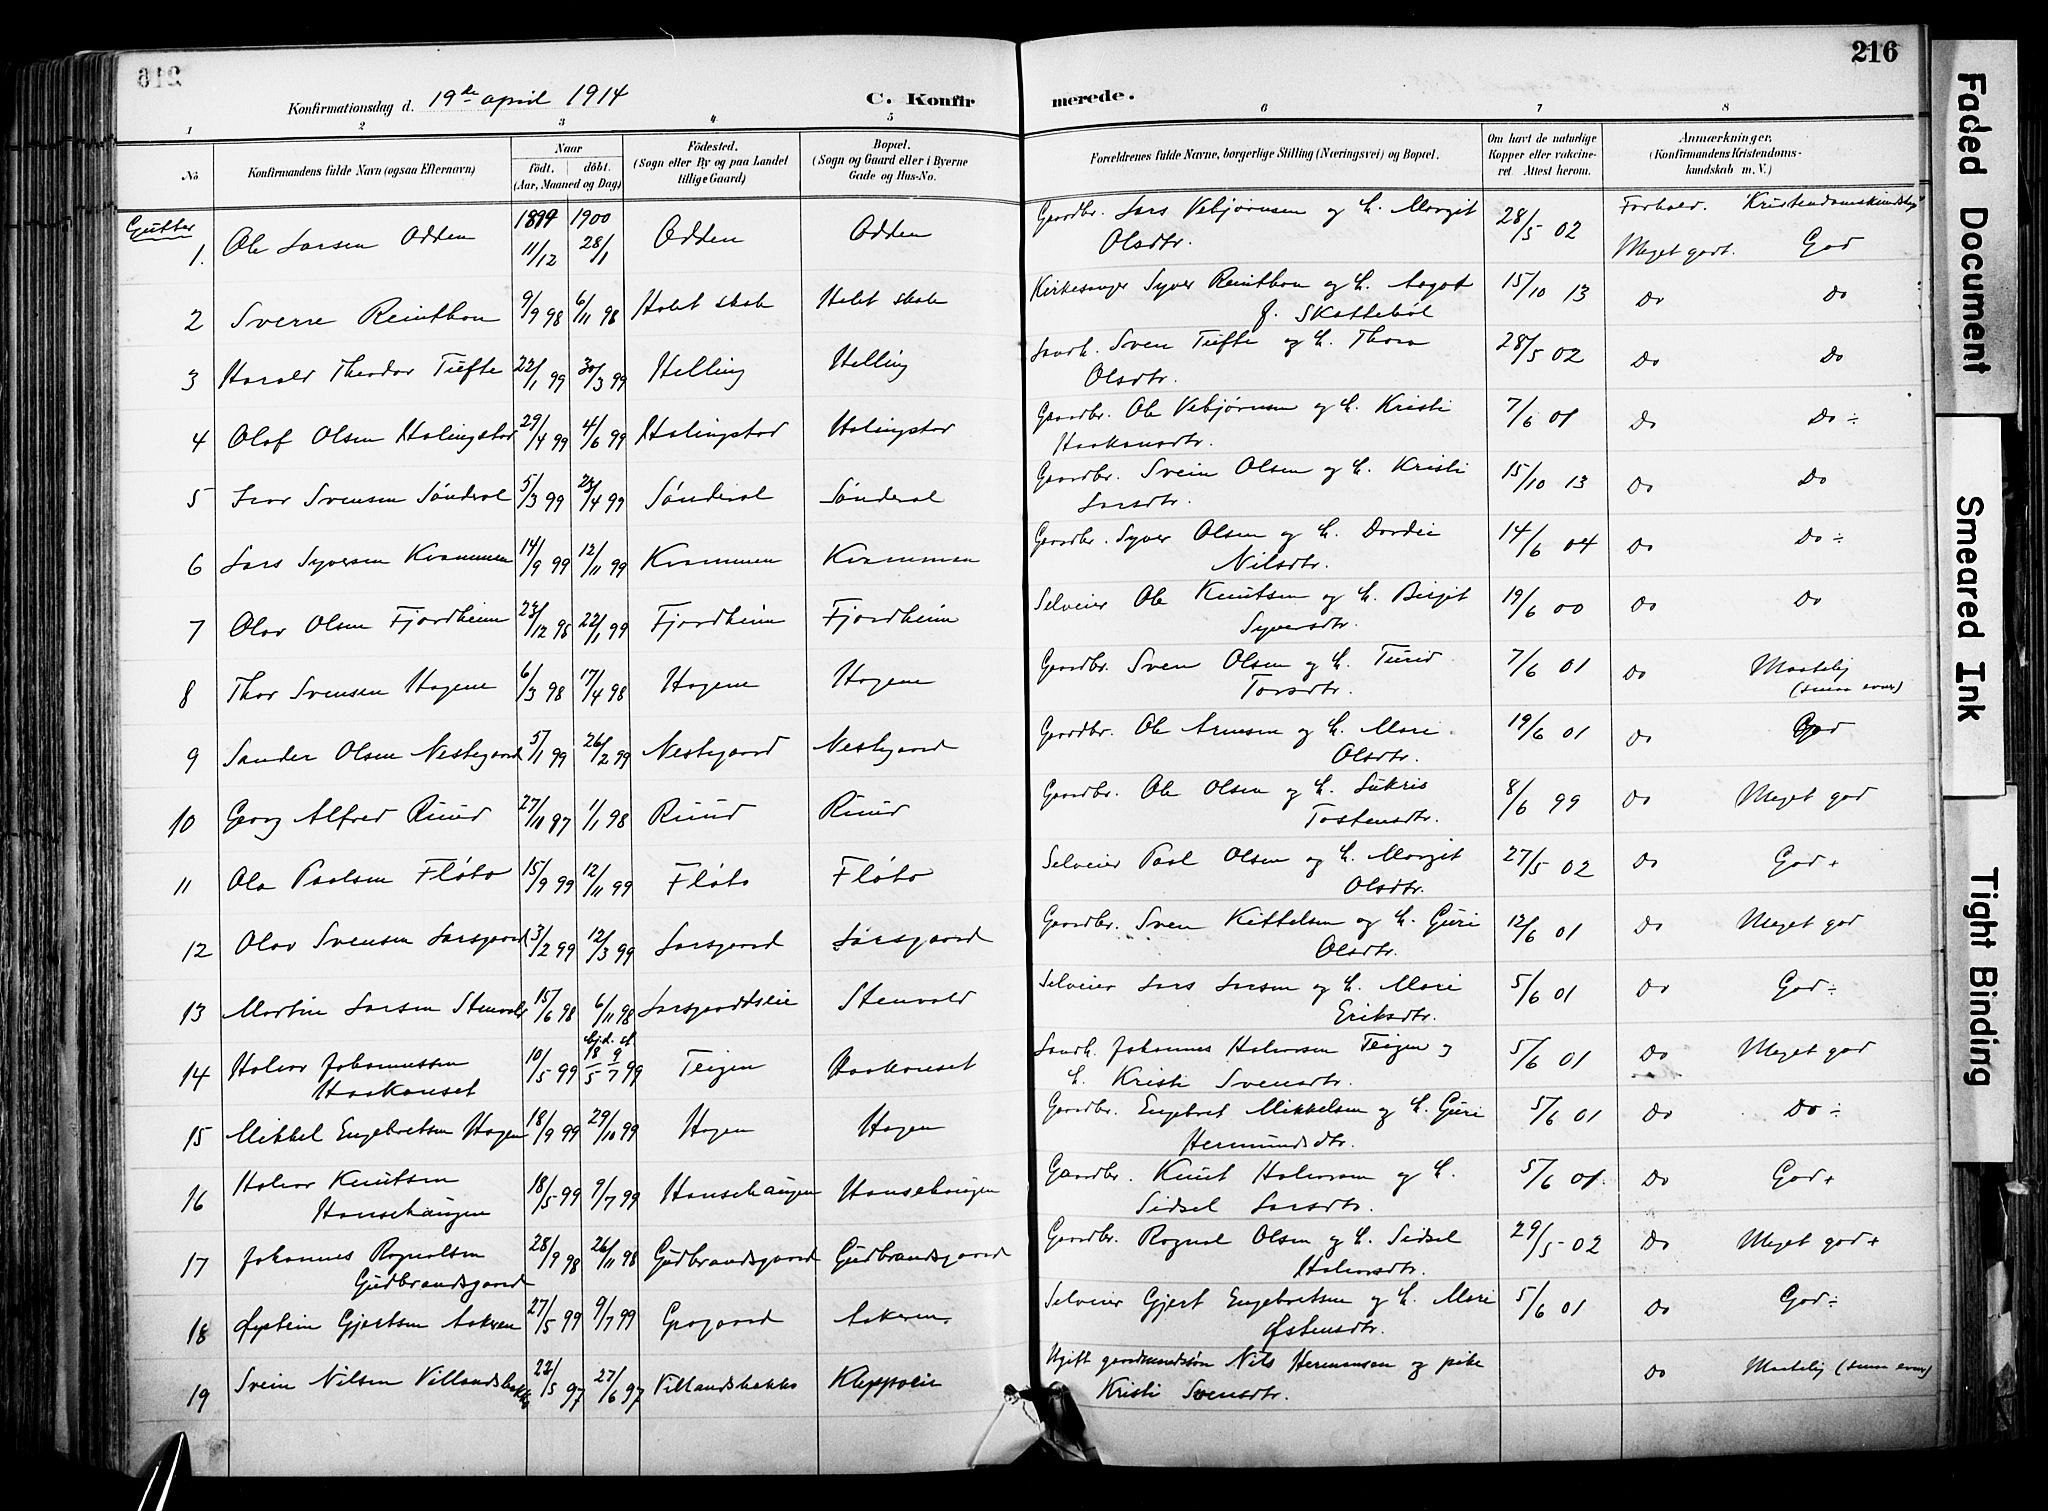 216
Konfirmationsdag d. 19de april 1914 C. Konfirmerede.
1 2 3 4 5 6 7 8
No Konfirmandens fulde Navn (ogsaa Efternavn) Naar født. døbt. (Aar, Maaned og Dag) Fødested. (Sogn eller By og paa Landet tillige Gaard) Bopæl. (Sogn og Gaard eller i Byerne Gade og Hus-No.) Forældrenes fulde Navne, borgerlige Stilling (Næringsvei) og Bopæl. Om havt de naturlige Kopper eller vakcineret. Attest herom. Anmærkninger, (Konfirmandens Kristendomskundskab m. V.)
Gutter 1899 1900 Forhold. Kristendomskundskab
1. Ole Larsen Odden 11/12 28/1 Odden Odden Gaardbr. Lars Vebjørnsen og h. Margit Olsdtr. 28/5 02 Meget godt. God
2 Sverre Reinthon 9/9 98 6/11 98 Holet skole Holet skole Kirkesanger Syver Reinthon og h. Aagot f. Skattebøl 15/10 13 Do Do
3 Harald Theodor Tufte 22/1 99 30/3 99 Helling Helling Landh. Sven Tufte og h. Thora Olsdtr. 28/5 02 Do Do
4 Olaf Olsen Halingstad 29/4 99 4/6 99 Halingstad Halingstad Gaardbr. Ole Vebjørnsen og h. Kristi Haakonsdtr. 7/6 01 Do Do ÷
5 Ivar Svensen Sønderal 5/3 99 23/4 99 Sønderal Sønderal Gaardbr. Svein Olsen og h. Kristi Larsdtr. 15/10 13 Do Do
6 Lars Syversen Krammen 14/9 99 12/11 99 Krammen Krammen Gaardbr. Syver Olsen og h. Dordei Nilsdtr. 14/6 04 Do Do ÷
7 Olav Olsen Fjordheim 23/12 98 22/1 99 Fjordheim Fjordheim Selveier Ole Knutsen og h. Birgit Syversdtr. 19/6 00 Do Do
8 Thor Svensen Hagene 6/3 98 17/4 98 Hagene Hagene Gaardbr. Sven Olsen og h. Turid Torsdtr. 7/6 01 Do Maatelig (smaa evner)
9 Sander Olsen Nestegaard 5/1 99 26/2 99 Nestegaard Nestegaard Gaardbr. Ole Arnesen og h. Mari Olsdtr. 19/6 01 Do God
10 Georg Alfred Ruud 27/11 97 1/1 98 Ruud Ruud Gaardbr. Ole Olsen og h. Sukris Tostensdtr. 8/6 99 Do Meget god
11 Ola Paalsen Fløto 15/9 99 12/11 99 Fløto Fløto Selveier Paal Olsen og h. Margit Olsdtr. 27/5 02 Do God +
12 Olav Svensen Larsgaard 3/2 99 12/3 99 Larsgaard Larsgaard Gaardbr. Sven Kittelsen og h. Guri Olsdtr. 12/6 01 Do Meget god
13 Martin Larsen Stenvold 15/6 98 6/11 98 Larsgaardseie Stenvold Selveier Lars Larsen og h. Mari Eriksdtr. 5/6 01 Do God ÷
14 Halvor Johannessen Haakonset 10/5 99 18/5 9/7 99 Teigen Haakonset Landh. Johannes Halvorsen Teigen og h. Kristi Svensdtr. 5/6 01 Do Meget god
15 Mikkel Engebretsen Hagen 18/9 99 29/10 99 Hagen Hagen Gaardbr. Engebret Mikkelsen og h. Guri Hermundsdtr. 5/6 01 Do Do ÷
16 Halvor Knutsen Hansehaugen 18/5 99 9/7 99 Hansehaugen Hansehaugen Gaardbr. Knut Halvorsen og h. Sidsel Larsdtr. 5/6 01. Do God +
17 Johannes Ragnalsen Gudbrandsgaard 28/9 98 26/11 98 Gudbrandsgaard Gudbrandsgaard Gaardbr. Ragnal Olsen og h. Sidsel Halvorsdtr. 29/5 02 Do Meget god +
18 Øystein Gjertsen Aakren 27/5 99 9/7 99 Gragaard Aakren Selveier Gjert Engebretsen og h. Mari Østensdtr. 5/6 01 Do God ÷
19 Svein Nilsen Villandsbakke 22/5 97 27/6 97 Villandsbakke Kleppoein Ugift gaardmandssøn Nils Hermansen og pike Kristi Svensdtr. Do Maatelig (smaa evner)
Faded Document
Smeared Ink
Tight Binding